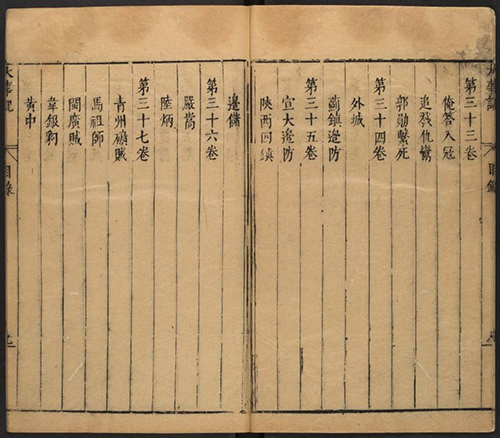 第三十三卷
俺答入寇
追戮仇鸞
郭勛繫死
第三十四卷
外城
薊鎮邊防
第三十五卷
宣大邊防
陝西四鎮
邊儲
第三十六卷
嚴嵩
陸炳
第三十七卷
青州礦賊
馬祖師
閩廣賊
韋銀豹
黃中
大事記
目錄